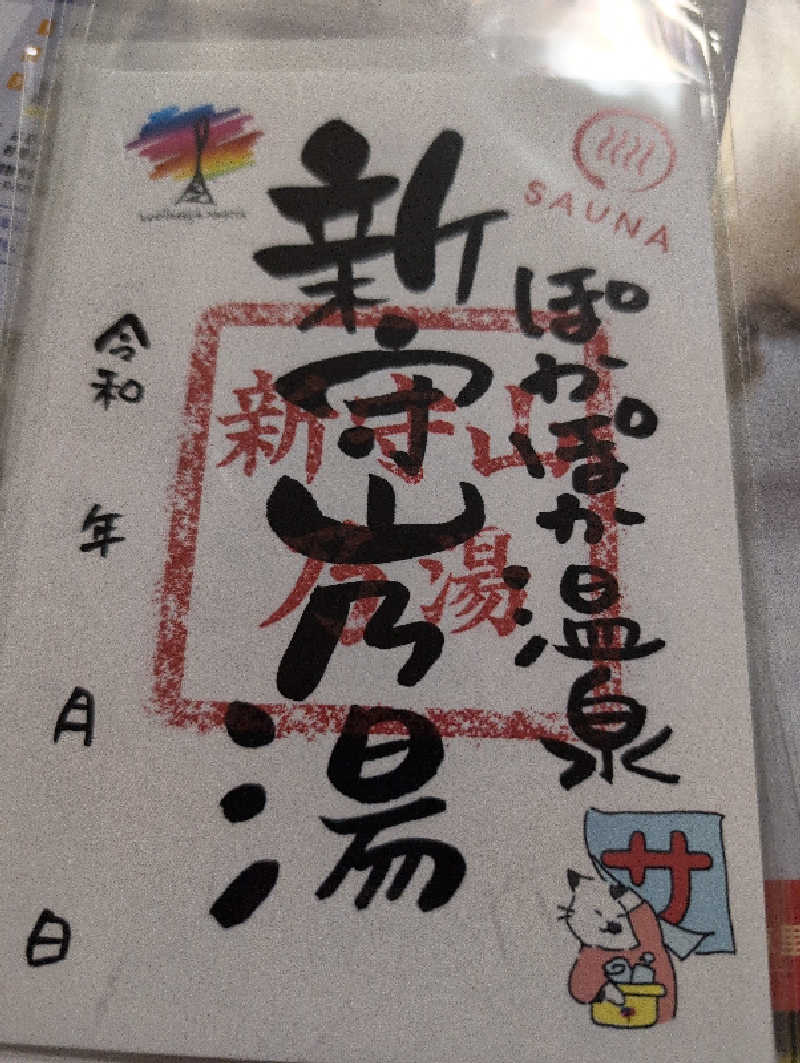 SAUNA
ぽかぽか温泉
新守山乃湯
新守山
乃湯
令和 年 月 日
サ